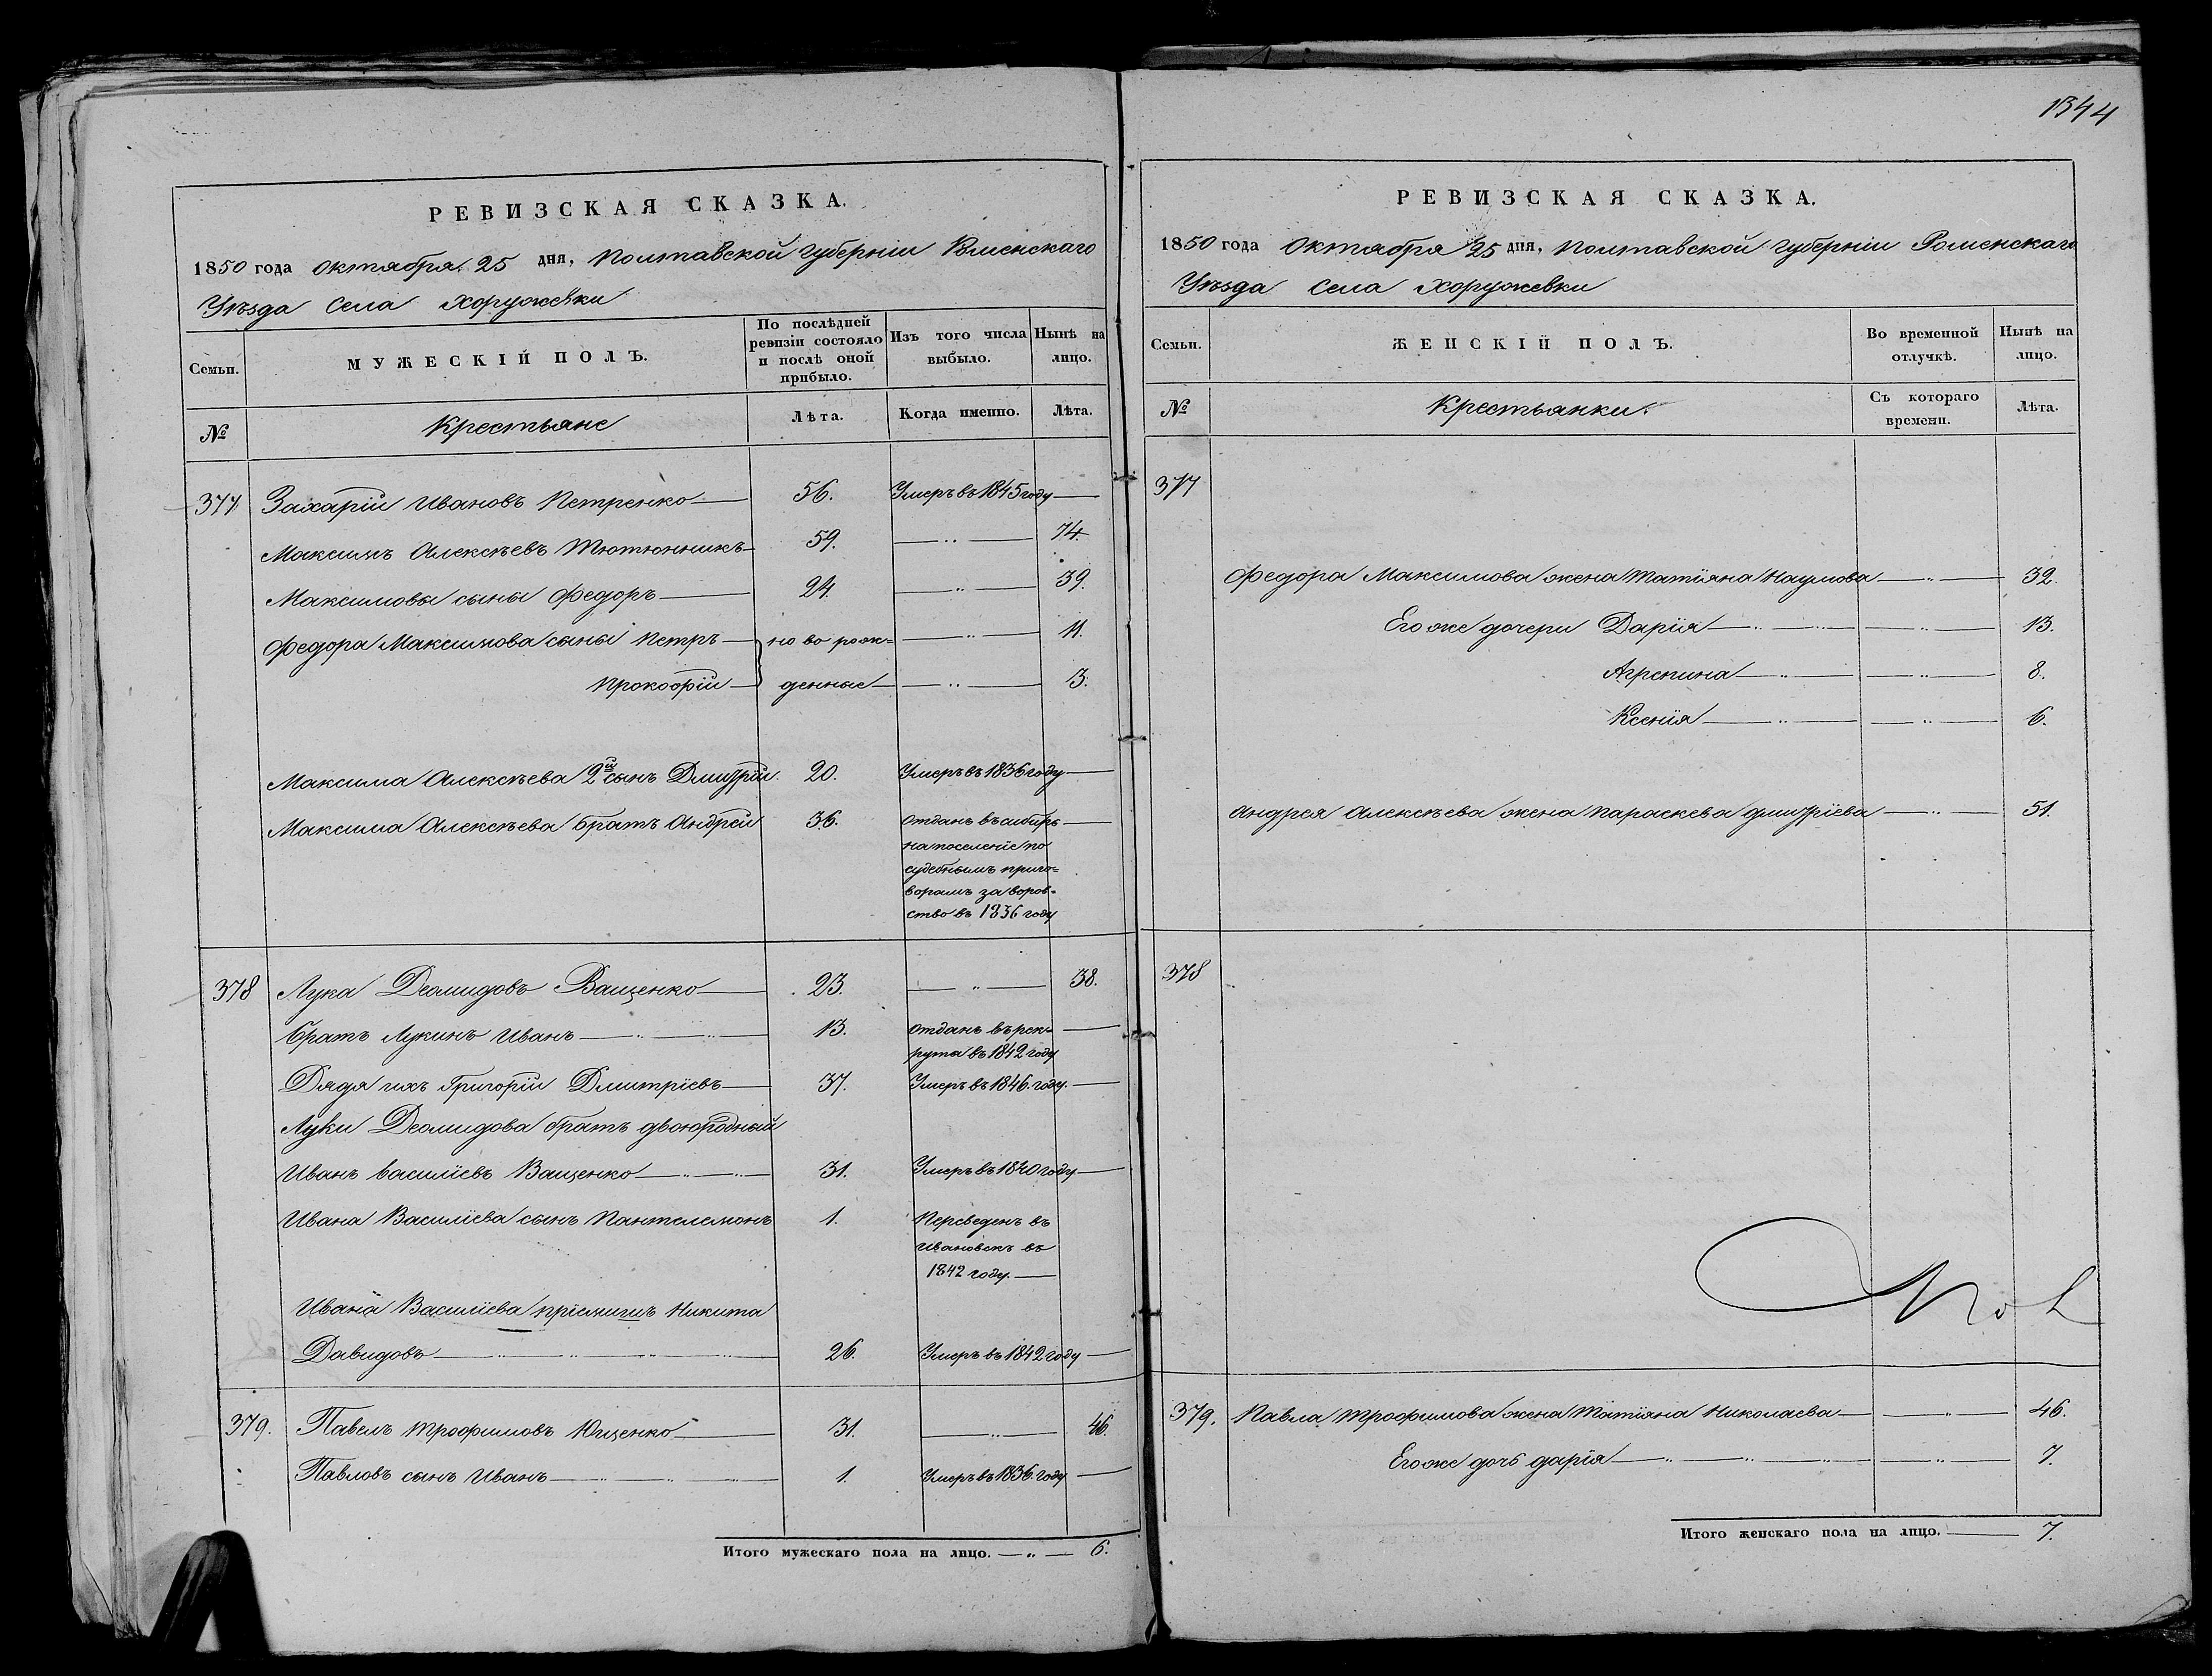 РЕВИЗСКАЯ СКАЗКА.
1850 года Октября 25 дня, Полтавской Губерніи Роменскаго
Уѣзда Села Хоружевки
Семьи. МУЖЕСКІЙ ПОЛЪ. По послѣдней ревизіи состояло и послѣ оной прибыло. Изъ того числа выбыло. Нынѣ на лицо.
№ Крестьяне Лѣта. Когда именно. Лѣта.
377 Захарій Ивановъ Петренко 56. Умеръ въ 1845 году
Максимъ Алексѣевъ Тютюнникъ 59. 74.
Максимовы сыны Федоръ 24. 39.
Федора Максимова сыны Петръ но во рож= 11.
Прокофій денные 3.
Максима Алексѣева 2й сынъ Дмитрій. 20. Умеръ въ 1836 году
Максима Алексѣева братъ Андрей 36. Отданъ въ сибирь
на поселеніе по
судебнымъ приго=
ворамъ за воров=
ство въ 1836 году
378 Лука Деомидовъ Ващенко 23. 38.
Братъ Лукинъ Иванъ 13. Отданъ въ рек=
руты въ 1842 году
Дядя ихъ Григорій Дмитріевъ 37. Умеръ въ 1846. году.
Луки Деомидова братъ двоюродный
Иванъ Василіевъ Ващенко 31. Умеръ въ 1840 году
Ивана Василіева сынъ Пантелемонъ 1. Переведенъ въ
Ивановскъ въ
1842 году.
Ивана Василіева пріемышъ Никита
Давидовъ 26. Умеръ въ 1842 году
379. Павелъ Трофимовъ Ющенко 31. 46.
Павловъ сынъ Иванъ 1. Умеръ въ 1836. году
Итого мужескаго пола на лицо. 6.
1344
РЕВИЗСКАЯ СКАЗКА.
1850 года Октября 25 дня, Полтавской Губерніи Роменскаго
Уѣзда Села Хоружевки
Семьи. ЖЕНСКІЙ ПОЛЪ. Во временной отлучкѣ. Нынѣ на лицо.
№ Крестьянки. Съ котораго времени. Лѣта.
377
Федора Максимова жена Татіяна Наумова 32.
Его же дочери Дарія 13.
Агрепина 8.
Ксенія 6.
Андрея Алексѣева жена Параскева Дмитріева 51.
378
379. Павла Трофимова жена Татіяна Николаева 46.
Его же дочь Дарія 7.
Итого женскаго пола на лицо. 7.